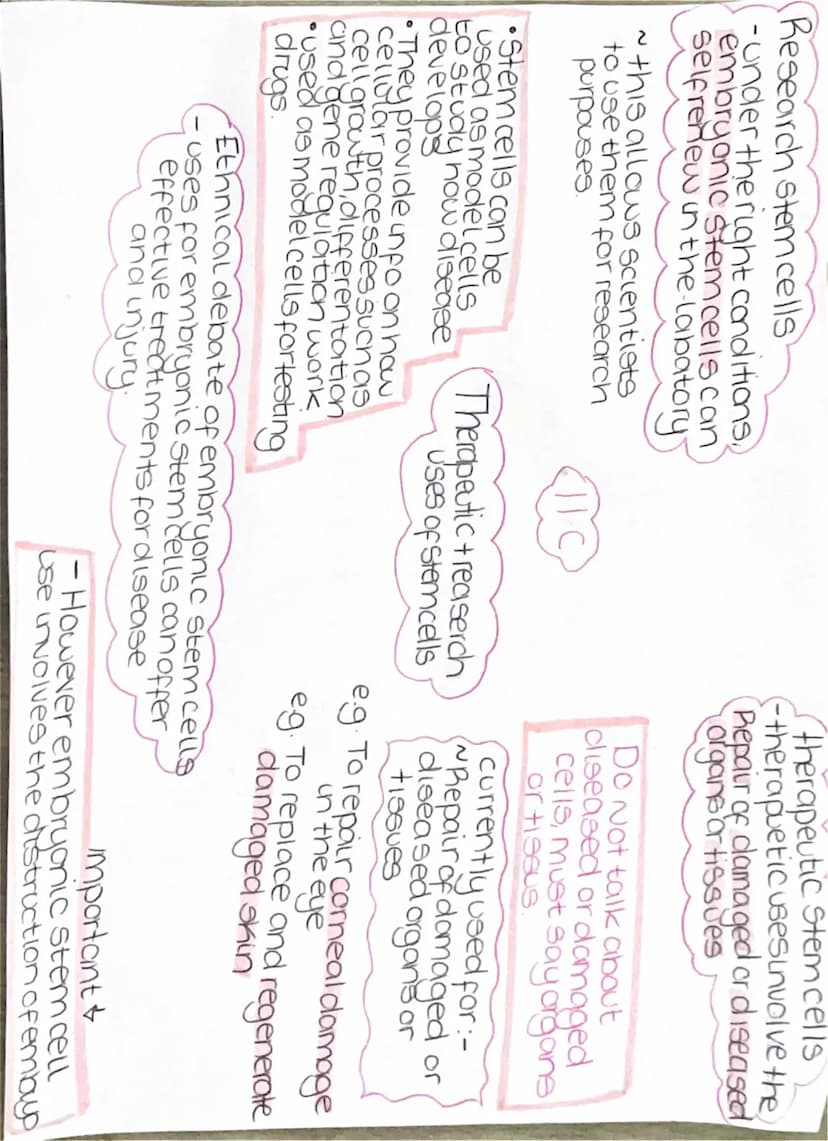 Research stem cells
- under the right conditions,
embryonic stem cells can
self renew in the labatory
~ this allows scientists
to use them for research
purpouses.
• Stem cells can be
used as model cells
to study how disease
develops
• They provide info on how
cellular processes such as
cell growth, differentation
and gene regulation work.
• used as model cells for testing
drugs.
therapeutic stem cells
- therapuetic uses involve the
Repair of damaged or diseased
organs or tissues
11c
Therapeutic + reaserch
uses of stem cells
Do Not talk about
diseased or damaged
cells, must say organs
or tissus.
currently used for :-
~ Repair of damaged or
diseased organs or
tissues
e.g. To repair corneal damage
in the eye
e.g. To replace and regenerate
damaged skin
Ethnical debate of embryonic stem cells
- uses for embryonic stem cells can offer
effective treatments for disease
and injury.
important ↓
- However embryonic stem cell
use involves the distruction of embayo